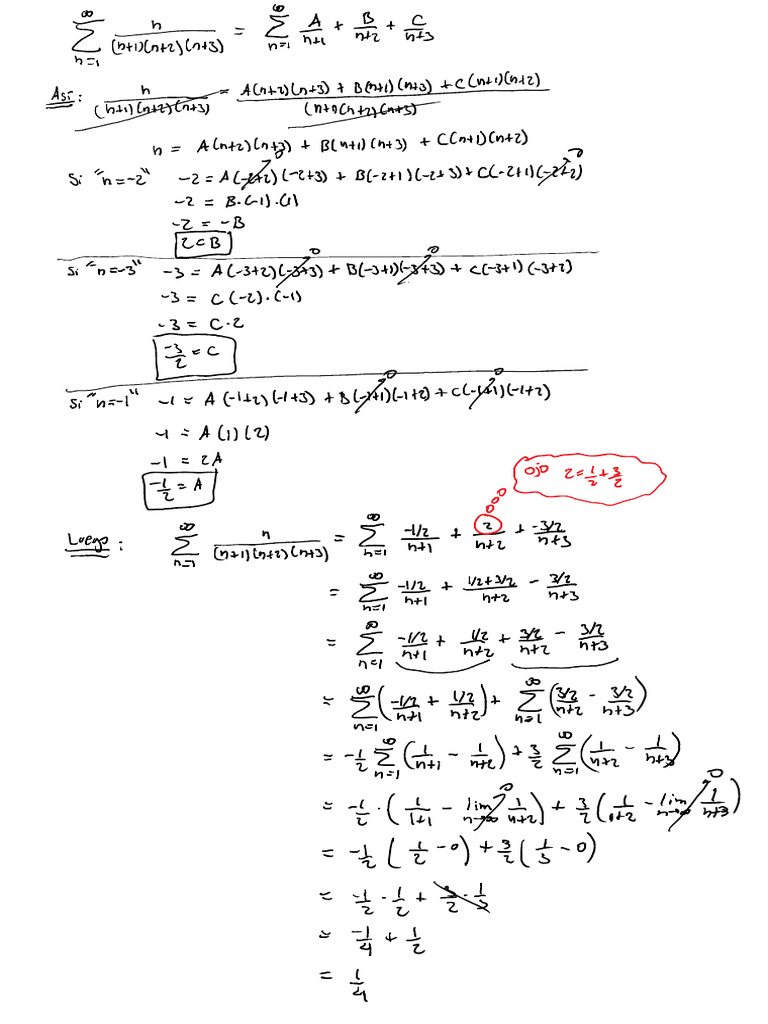 ∞∑n=1 n/((n+1)(n+2)(n+3)) = ∞∑n=1 A/(n+1) + B/(n+2) + C/(n+3)
Así: n/((n+1)(n+2)(n+3)) = (A(n+2)(n+3) + B(n+1)(n+3) + C(n+1)(n+2))/((n+1)(n+2)(n+3))
n = A(n+2)(n+3) + B(n+1)(n+3) + C(n+1)(n+2)
Si "n=-2" -2 = A(-2+2)(-2+3) + B(-2+1)(-2+3) + C(-2+1)(-2+2)
-2 = B·(-1)·(1)
-2 = -B
2 = B
Si "n=-3" -3 = A(-3+2)(-3+3) + B(-3+1)(-3+3) + C(-3+1)(-3+2)
-3 = C(-2)·(-1)
-3 = C·2
-3/2 = C
Si "n=-1" -1 = A(-1+2)(-1+3) + B(-1+1)(-1+2) + C(-1+1)(-1+2)
-1 = A(1)(2)
-1 = 2A
-1/2 = A
Ojo 2 = 1/2 + 3/2
Luego: ∞∑n=1 n/((n+1)(n+2)(n+3)) = ∞∑n=1 (-1/2)/(n+1) + 2/(n+2) + (-3/2)/(n+3)
= ∞∑n=1 (-1/2)/(n+1) + (1/2+3/2)/(n+2) - (3/2)/(n+3)
= ∞∑n=1 (-1/2)/(n+1) + (1/2)/(n+2) + (3/2)/(n+2) - (3/2)/(n+3)
= ∞∑n=1 ((-1/2)/(n+1) + (1/2)/(n+2)) + ∞∑n=1 ((3/2)/(n+2) - (3/2)/(n+3))
= -1/2 ∞∑n=1 (1/(n+1) - 1/(n+2)) + 3/2 ∞∑n=1 (1/(n+2) - 1/(n+3))
= -1/2 · (1/(1+1) - lim n→∞ 1/(n+2)) + 3/2 (1/(1+2) - lim n→∞ 1/(n+3))
= -1/2 (1/2 - 0) + 3/2 (1/3 - 0)
= -1/2 · 1/2 + 3/2 · 1/3
= -1/4 + 1/2
= 1/4